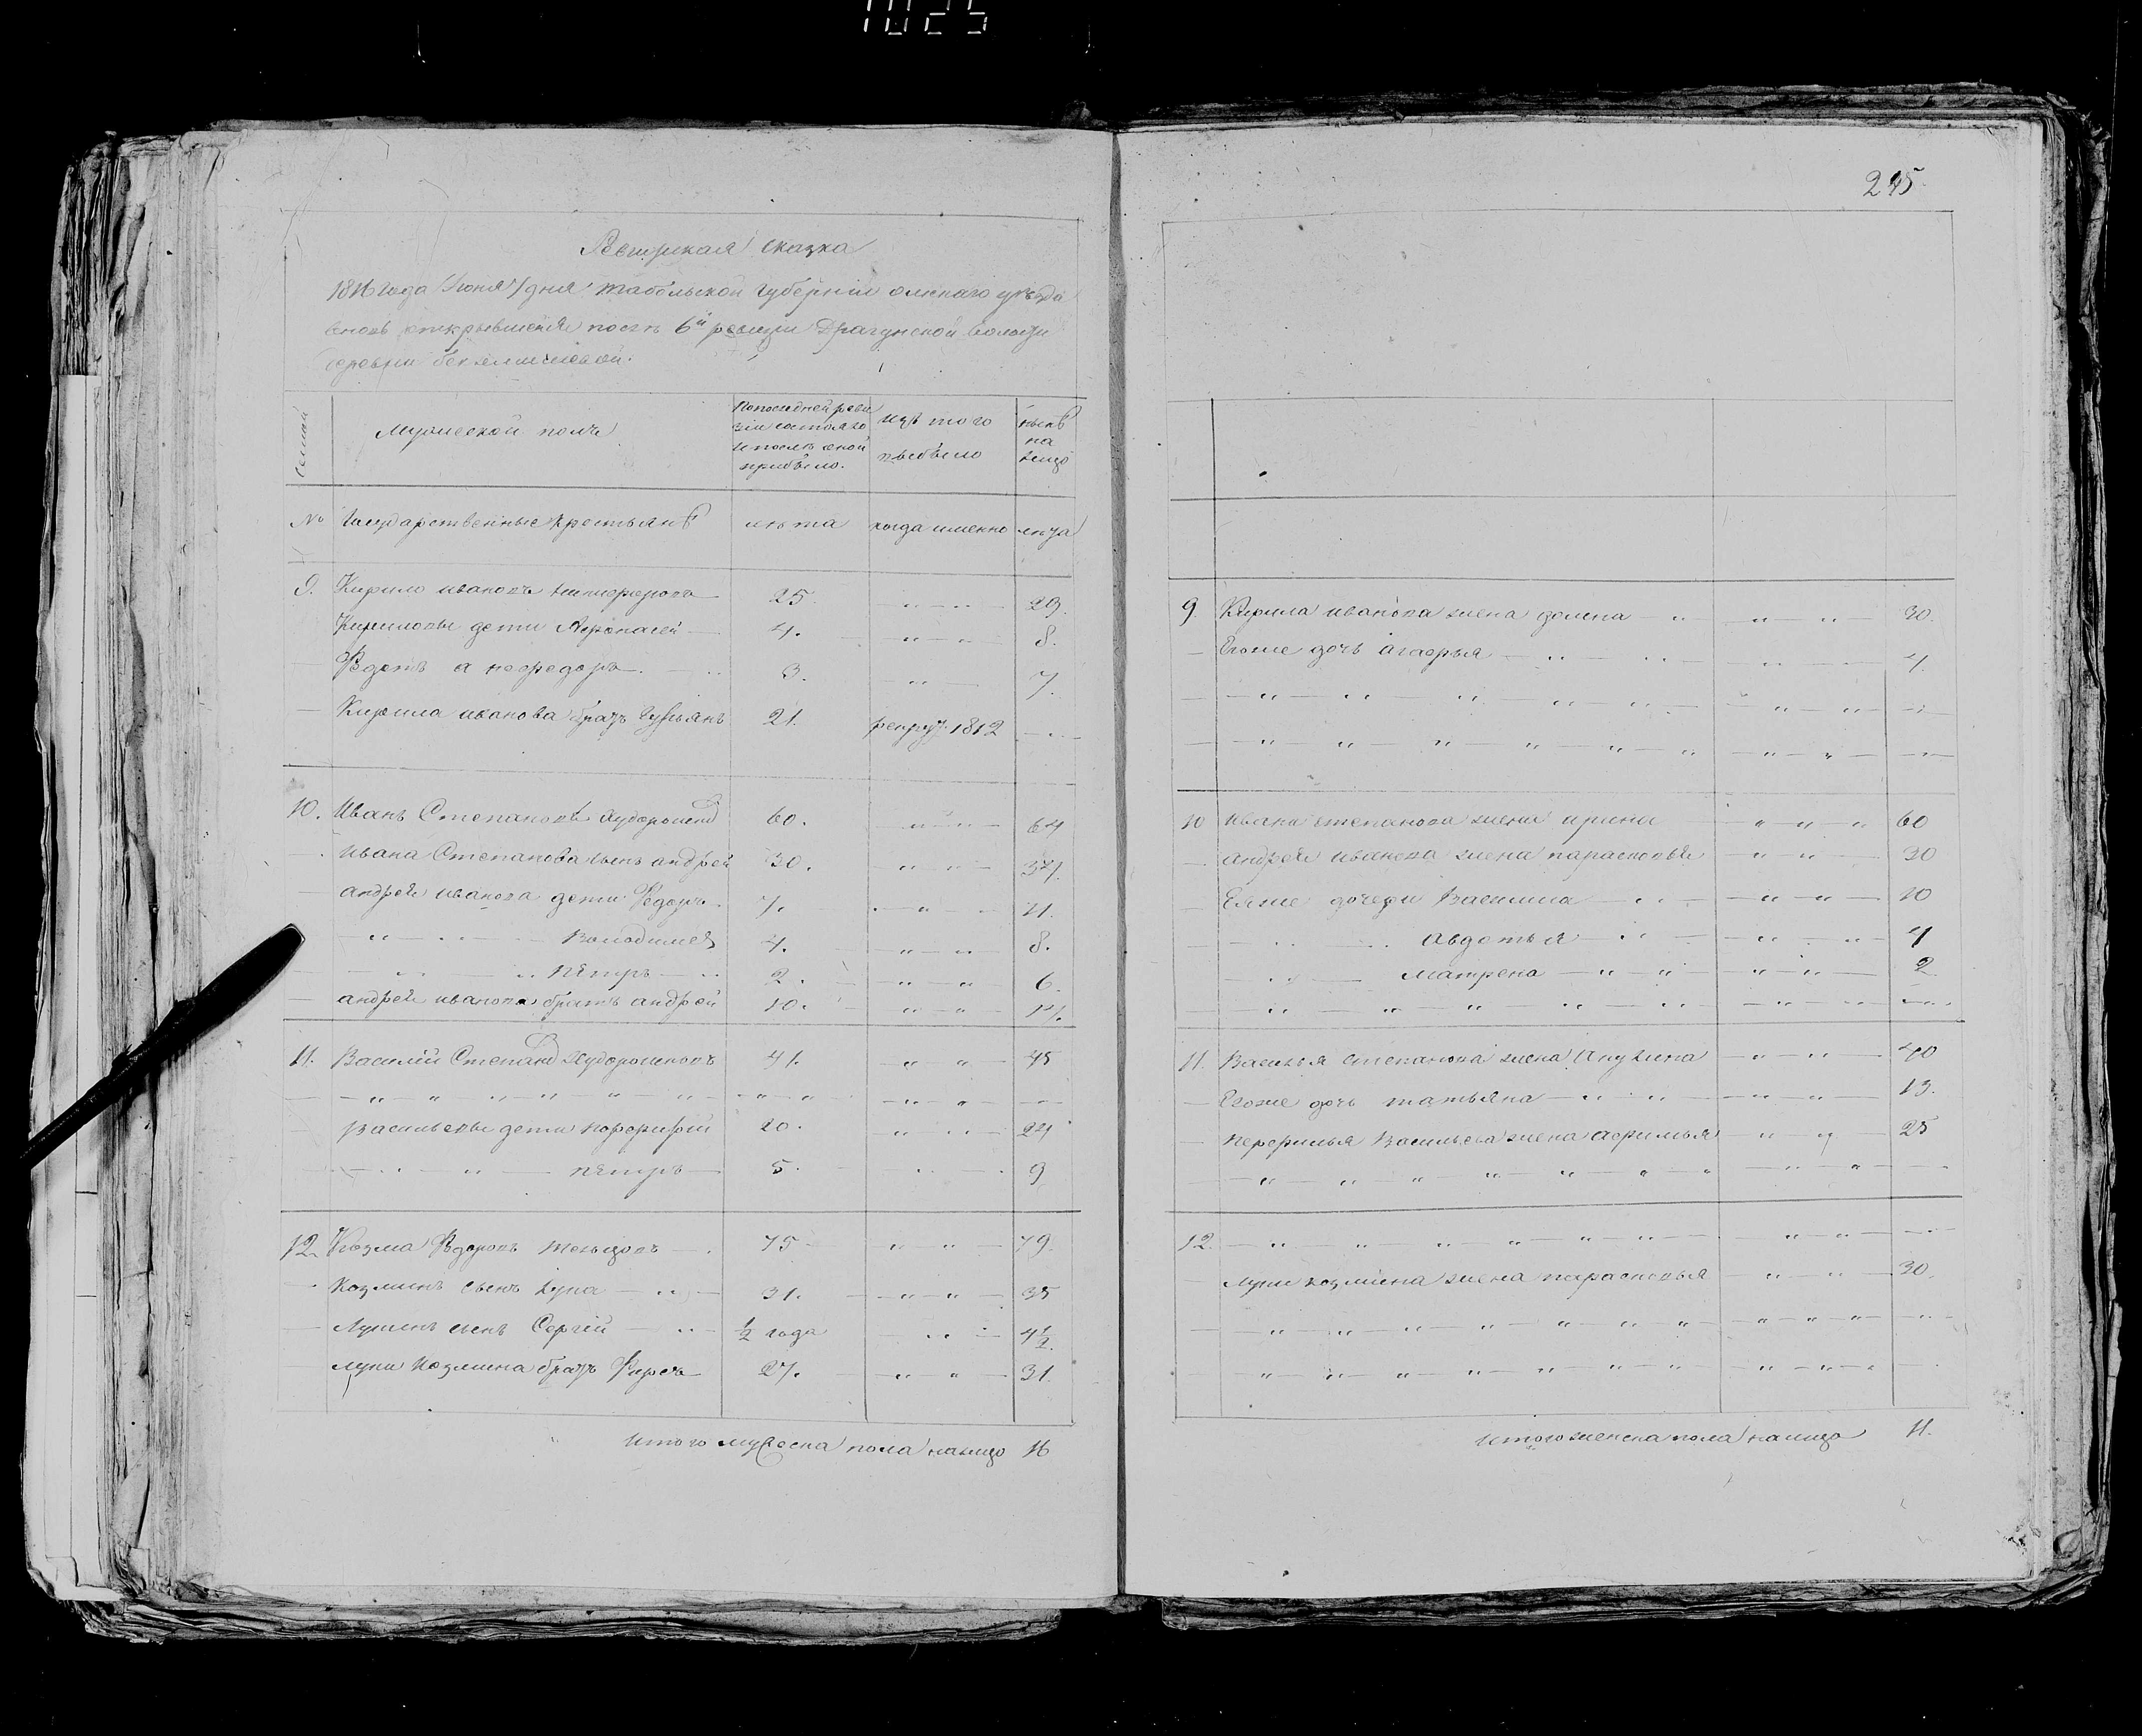 1025
Ревижская сказка
1816 года Июня 1 дня Тобольской Губернии омскаго уезда
вновь открывшейся после 6й ревизии Драгунской волости
деревни
Семьи
Мужеской полъ
По последней реви
зіи состояло
и после оной
прибыло.
изъ того
выбыло
ныне
на
лицо
№ Государственные крестьяне лета когда именно лета
9. Кирило ивановъ 25. 29.
Кириловы дети Афонасей 4. 8.
Федотъ а 3. 7.
Кирила иванова братъ 21. рекрут. 1812
10. Иванъ Степановъ 60. 64
Ивана Степанова сынъ андрей 30. 34.
андрея иванова дети Федоръ 7. 11.
Володимеръ 4. 8.
Петръ 2. 6.
андрея иванова братъ андрей 10. 14.
11. Василий Степанов Худорошковъ 41. 45
Васильевы дети порфирий 20. 24
Петръ 5. 9
12. Козма Федоровъ 75 79.
Козминъ сынъ Лупа 31. 35
Лупинъ сынъ Сергей ½ года 4½.
Лупы Козмина братъ Фирсъ 27. 31.
Итого мужеска пола налицо 16
245.
9. Кирила иванова жена 30.
Егоже дочь Агафья 4.
10 Ивана степанова жена ирина 60
андрея иванова жена парасковья 30
Егоже дочери Василиса 10
авдотья 4
матрена 2
11. Василья степанова жена Акулина 40
Егоже дочь татьяна 13.
Перфилья Васильева жена афимья 25
12.
лупы козмина жена парасковья 30.
Итого женска пола налицо 11.